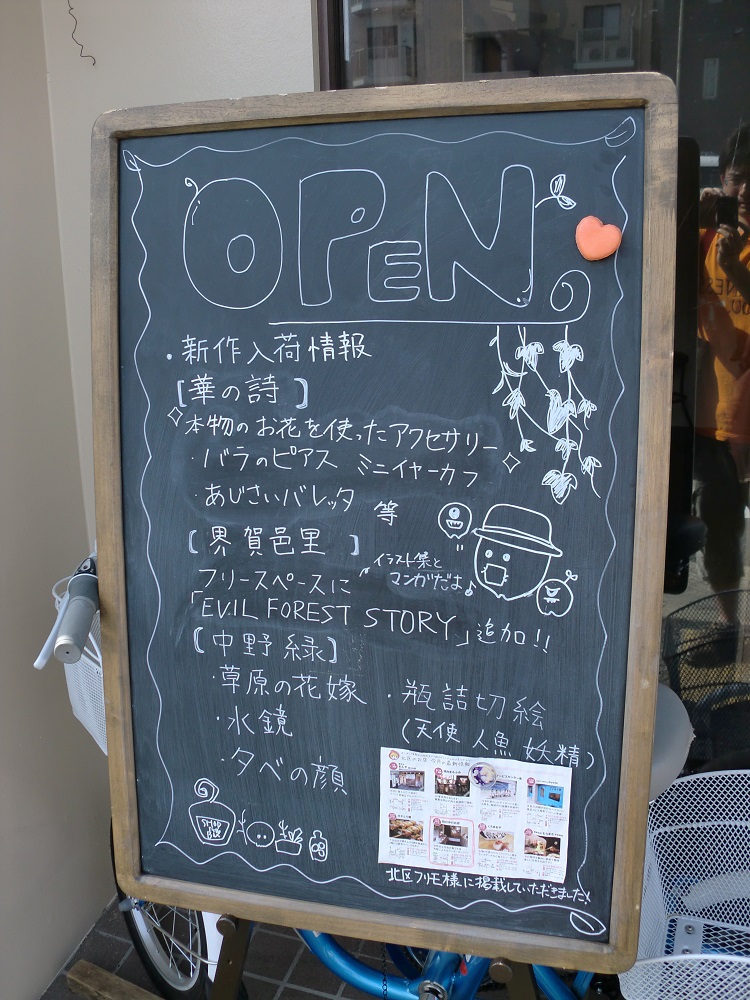 OPEN
・新作入荷情報
[華の詩]
本物のお花を使ったアクセサリー
・バラのピアス ミニイヤーカフ
・あじさいバレッタ 等
[界賀邑里]
フリースペースに
イラスト集と
マンガだよ♪
「EVIL FOREST STORY」追加!!
[中野緑]
・草原の花嫁
・水鏡
・夕べの顔
・瓶詰切絵
(天使 人魚 妖精)
SHOP
北区フリモ様に掲載していただきました!